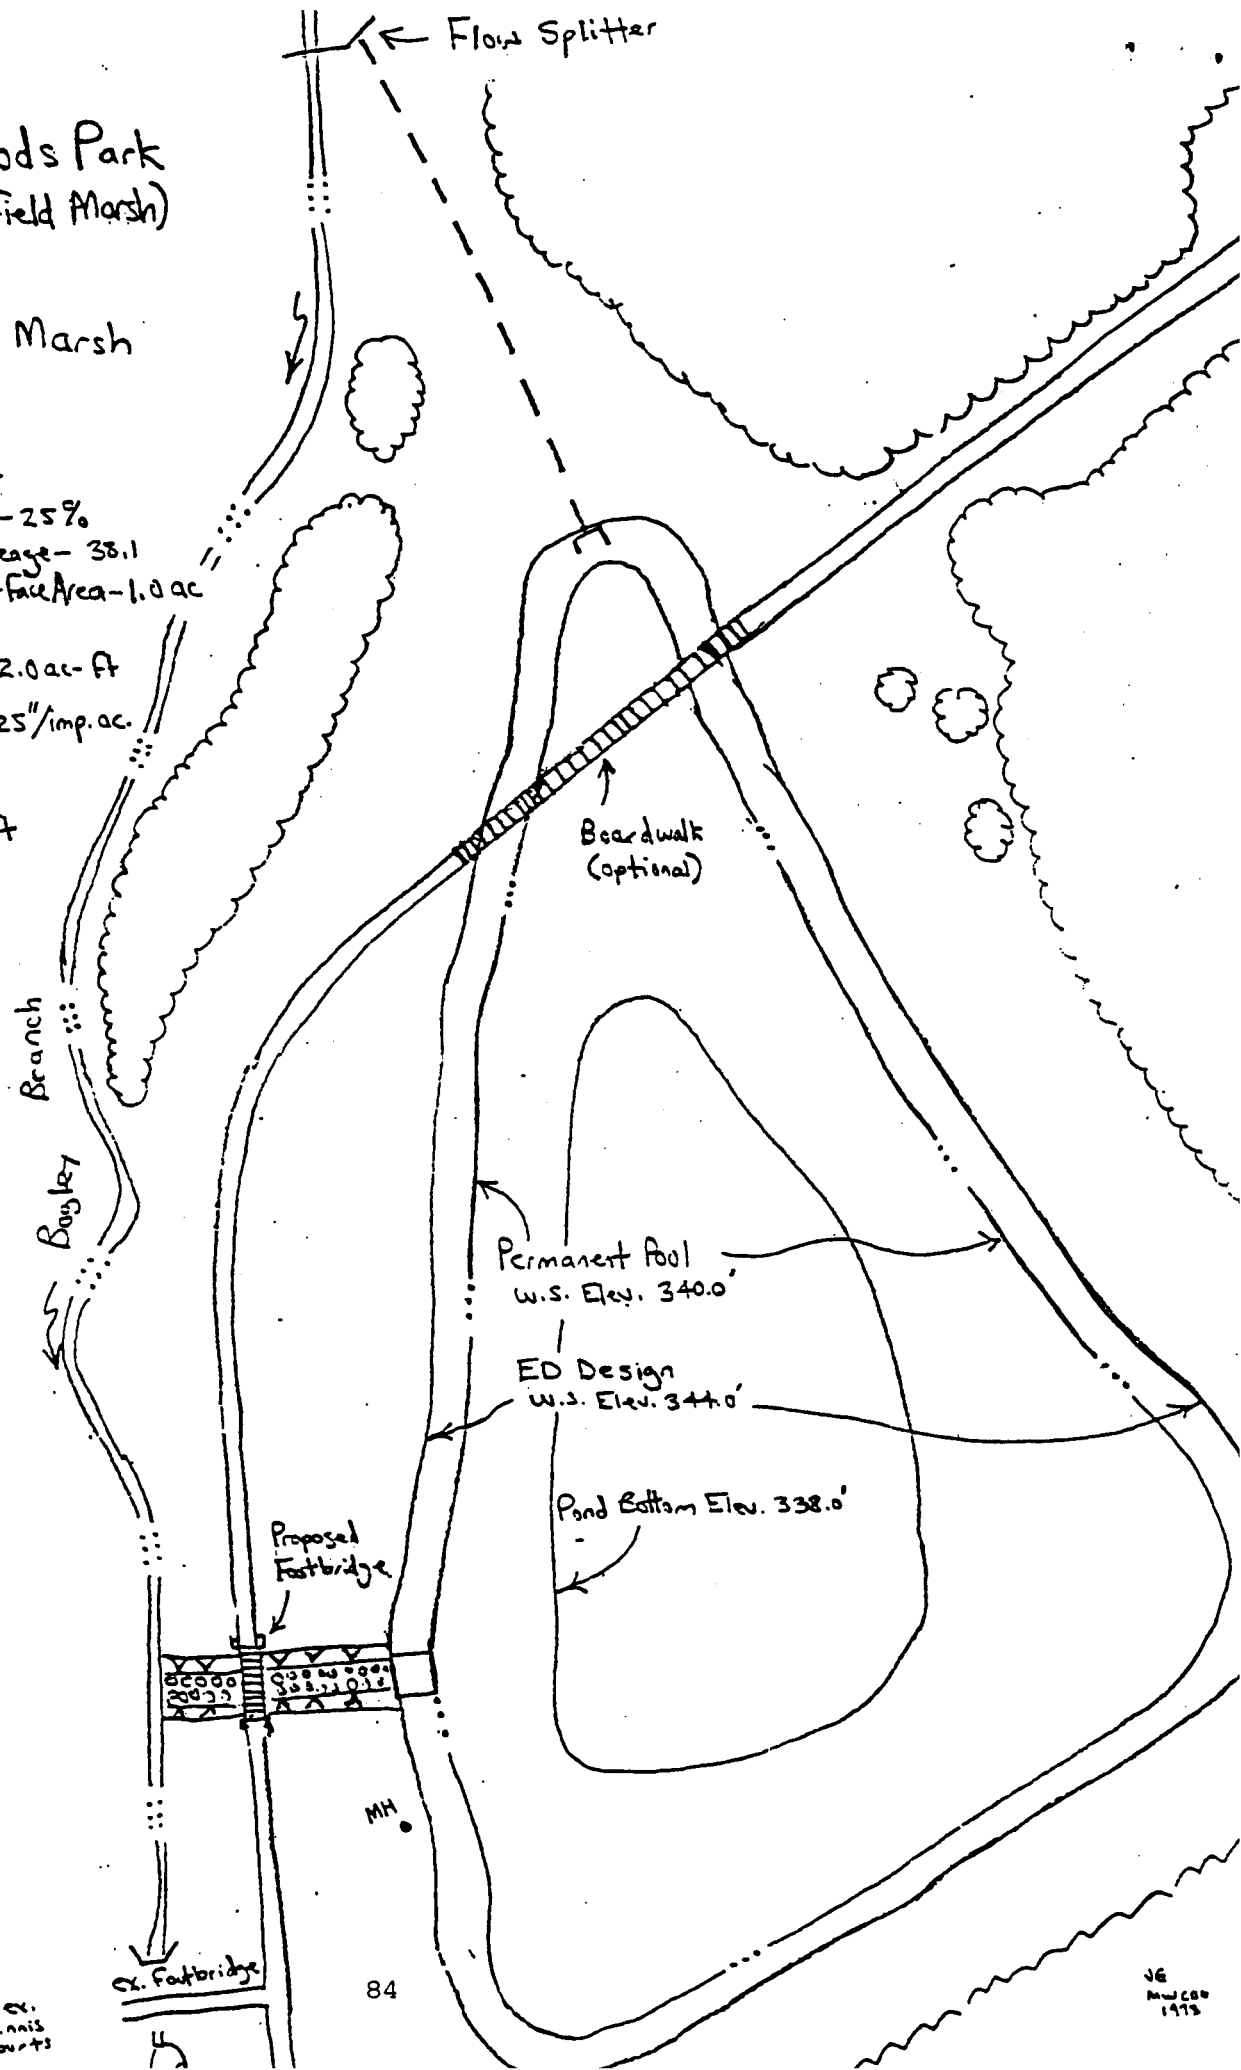 Flow Splitter
ods Park
Field Marsh)
Marsh
-25%
eage- 38.1
-face Area-1.0 ac
2.0 ac-ft
25"/imp.ac.
Boardwalk
(optional)
Branch
Bagley
Permanent Pool
W.S. Elev. 340.0'
ED Design
W.S. Elev. 344.0'
Pond Bottom Elev. 338.0'
Proposed
Footbridge
MH
ex. Footbridge
84
ex.
nnis
ourts
JG